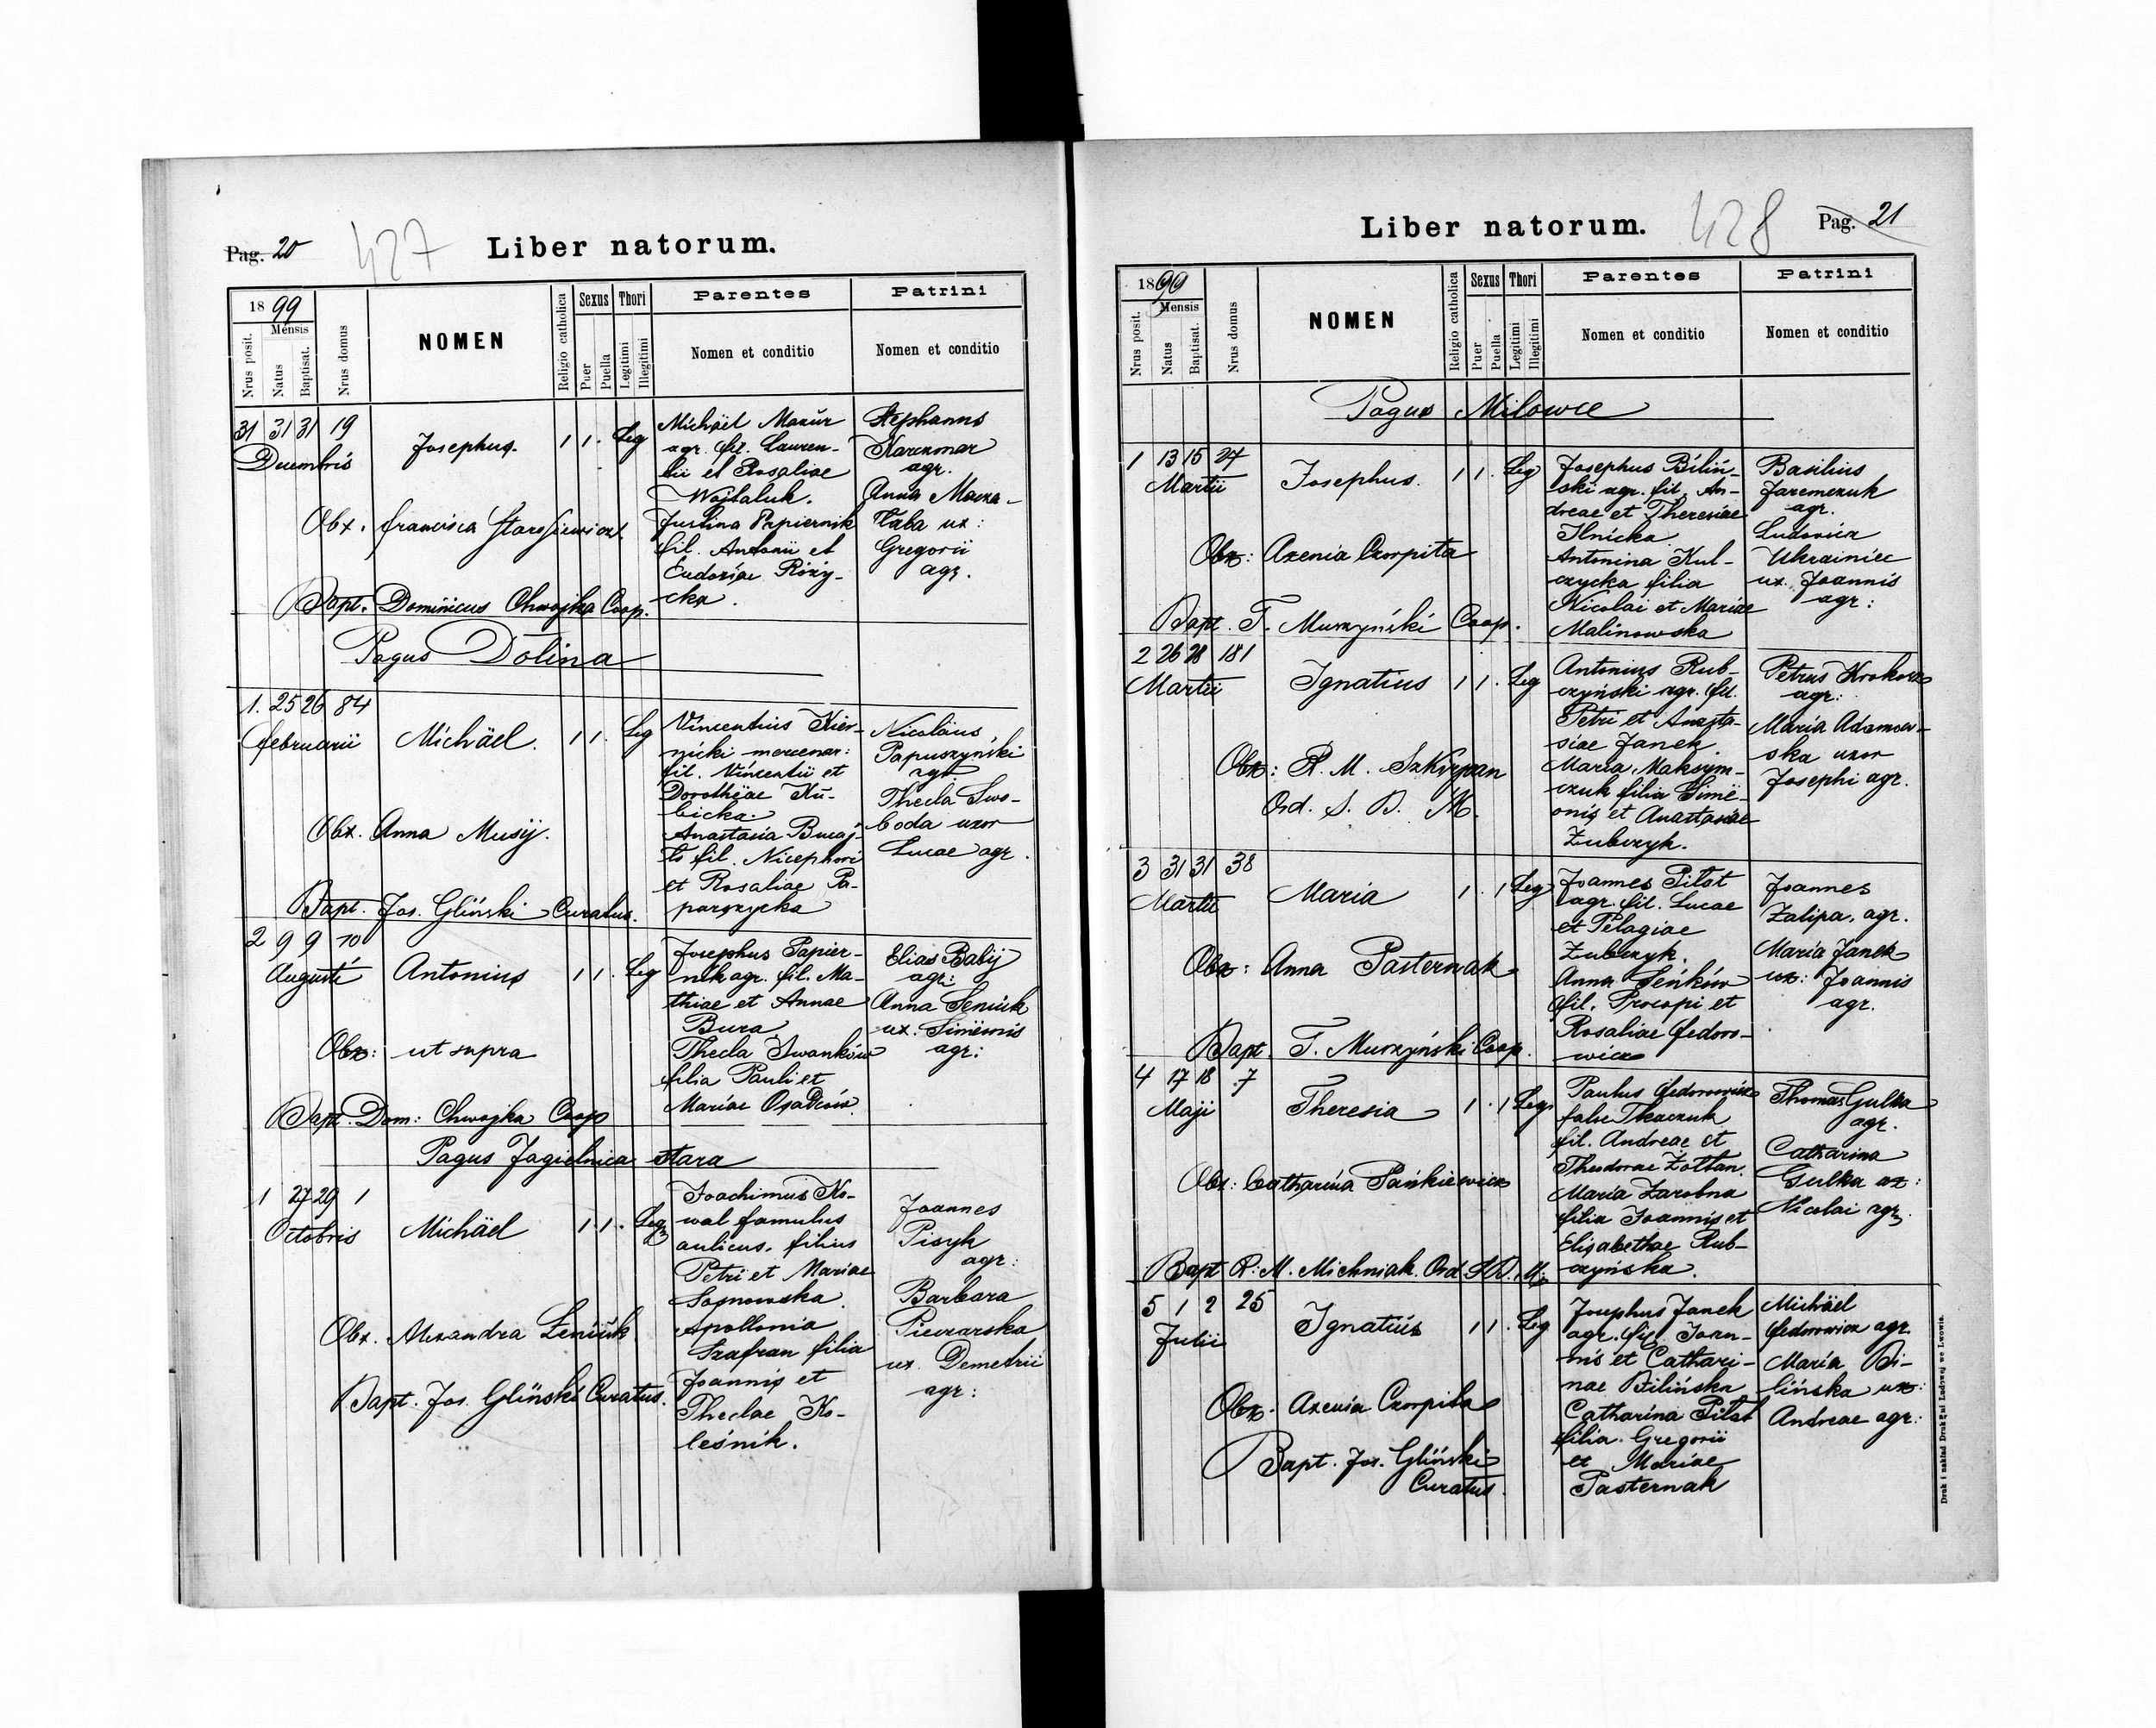 Pag. 20
427
Liber natorum.
1899
Mensis
Nrus posit.
Natus
Baptisat.
Nrus domus
NOMEN
Religio catholica
Sexus
Puer
Puella
Thori
Legitimi
Illegitimi
Parentes
Nomen et conditio
Patrini
Nomen et conditio
31 31 31 19
Decembris
Josephus.
1 1. Leg
Michäel Mazur
agr. fil. Lauren-
tii et Rosaliae
Wojtaluk.
Justina Papiernik
fil. Antonii et
Eudoxiae Róży-
cka.
Stephanus
Karczmar
agr.
Anna
ux:
Gregorii
agr.
Obx. francisca
Bapt. Dominicus Chwojka Coop.
Pagus Dolina
1. 25 26 84
februarii
Michäel.
1 1. Leg
Vincentius Kier-
nicki mercenar:
fil. Vincentii et
Dorotheae Ku-
bicka.
Anastasia Bucaj-
ło fil. Nicephori
et Rosaliae Pa-
parzycka
Nicolaus
Papuszyński
agr.
Thecla Swo-
boda uxor
Lucae agr.
Obx. Anna Musij.
Bapt. Jos. Gliński Curatus.
2 9 9 70
Augusti
Antonius
1 1. Leg
Josephus Papier-
nik agr. fil. Ma-
thiae et Annae
Bura
Thecla Iwanków
filia Pauli et
Mariae Osadców
Elias Babij
agr:
Anna Seniuk
ux. Simeonis
agr:
Obx: ut supra
Bapt. Dom: Chwojka Coop
Pagus Jagielnica stara
1 27 29 1
Octobris
Michäel
1 1. Leg
Joachimus Ko-
wal famulus
aulicus. filius
Petri et Mariae
Sosnowska.
Apollonia
Szafran filia
Joannis et
Theclae Ko-
leśnik.
Joannes
Pisyk
agr:
Barbara
Pieczarska
ux. Demetrii
agr:
Obx. Alexandra Leniuk
Bapt. Jos. Gliński Curatus.
Liber natorum.
428
Pag. 21
1899
Mensis
Nrus posit.
Natus
Baptisat.
Nrus domus
NOMEN
Religio catholica
Sexus
Puer
Puella
Thori
Legitimi
Illegitimi
Parentes
Nomen et conditio
Patrini
Nomen et conditio
Pagus Milowce
1 13 15 27
Martii
Josephus.
1 1. Leg
Josephus Biliń-
ski agr. fil. An-
dreae et Theresiae
Ilnicka
Antonina Kul-
czycka filia
Nicolai et Mariae
Malinowska
Basilius
Jaremczuk
agr.
Ludovica
Ukrainiec
ux. Joannis
agr:
Obx: Axenia Czorpita
Bapt. T. Murzyński Coop.
2 26 28 181
Martii
Ignatius
1 1. Leg
Antonius Rub-
czyński agr. fil.
Petri et Anasta-
siae Janek.
Maria Maksym-
czuk filia Sime-
onis et Anastasiae
Zubczyk.
Petrus
agr:
Maria Adamow-
ska uxor
Josephi agr.
Obx: R. M. Szkirpan
Ord. S. B. M.
3 31 31 38
Martii
Maria
1. 1 Leg
Joannes Pitst
agr. fil. Lucae
et Pelagiae
Zubczyk.
Anna Seńków
fil. Procopi et
Rosaliae fedoro-
wicz
Joannes
Zalipa, agr.
Maria Janek
ux: Joannis
agr.
Obx: Anna Pasternak
Bapt. T. Murzyński Coop.
4 17 18 7
Maji
Theresia
1. 1 Leg
Paulus fedorowicz
false Tkaczuk
fil. Andreae et
Theodorae Żołtan.
Maria Zarobna
filia Joannis et
Elisabethae Rub-
czyńska.
Thomas Gulka
agr.
Catharina
Gulka ux:
Nicolai agr.
Obx: Catharina Pańkiewicz
Bapt. R. M. Michniak. Ord. S.B.M.
5 1 2 25
Julii
Ignatius
1 1. Leg
Josephus Janek
agr. fil. Joan-
nis et Cathari-
nae Bilińska
Catharina Pitst
filia Gregorii
et Mariae
Pasternak
Michäel
fedorowicz agr.
Maria Bi-
lińska ux:
Andreae agr:
Obx. Axenia Czorpita
Bapt. Jos. Gliński
Curatus.
Druk i nakład Drukarni Ludowej we Lwowie.